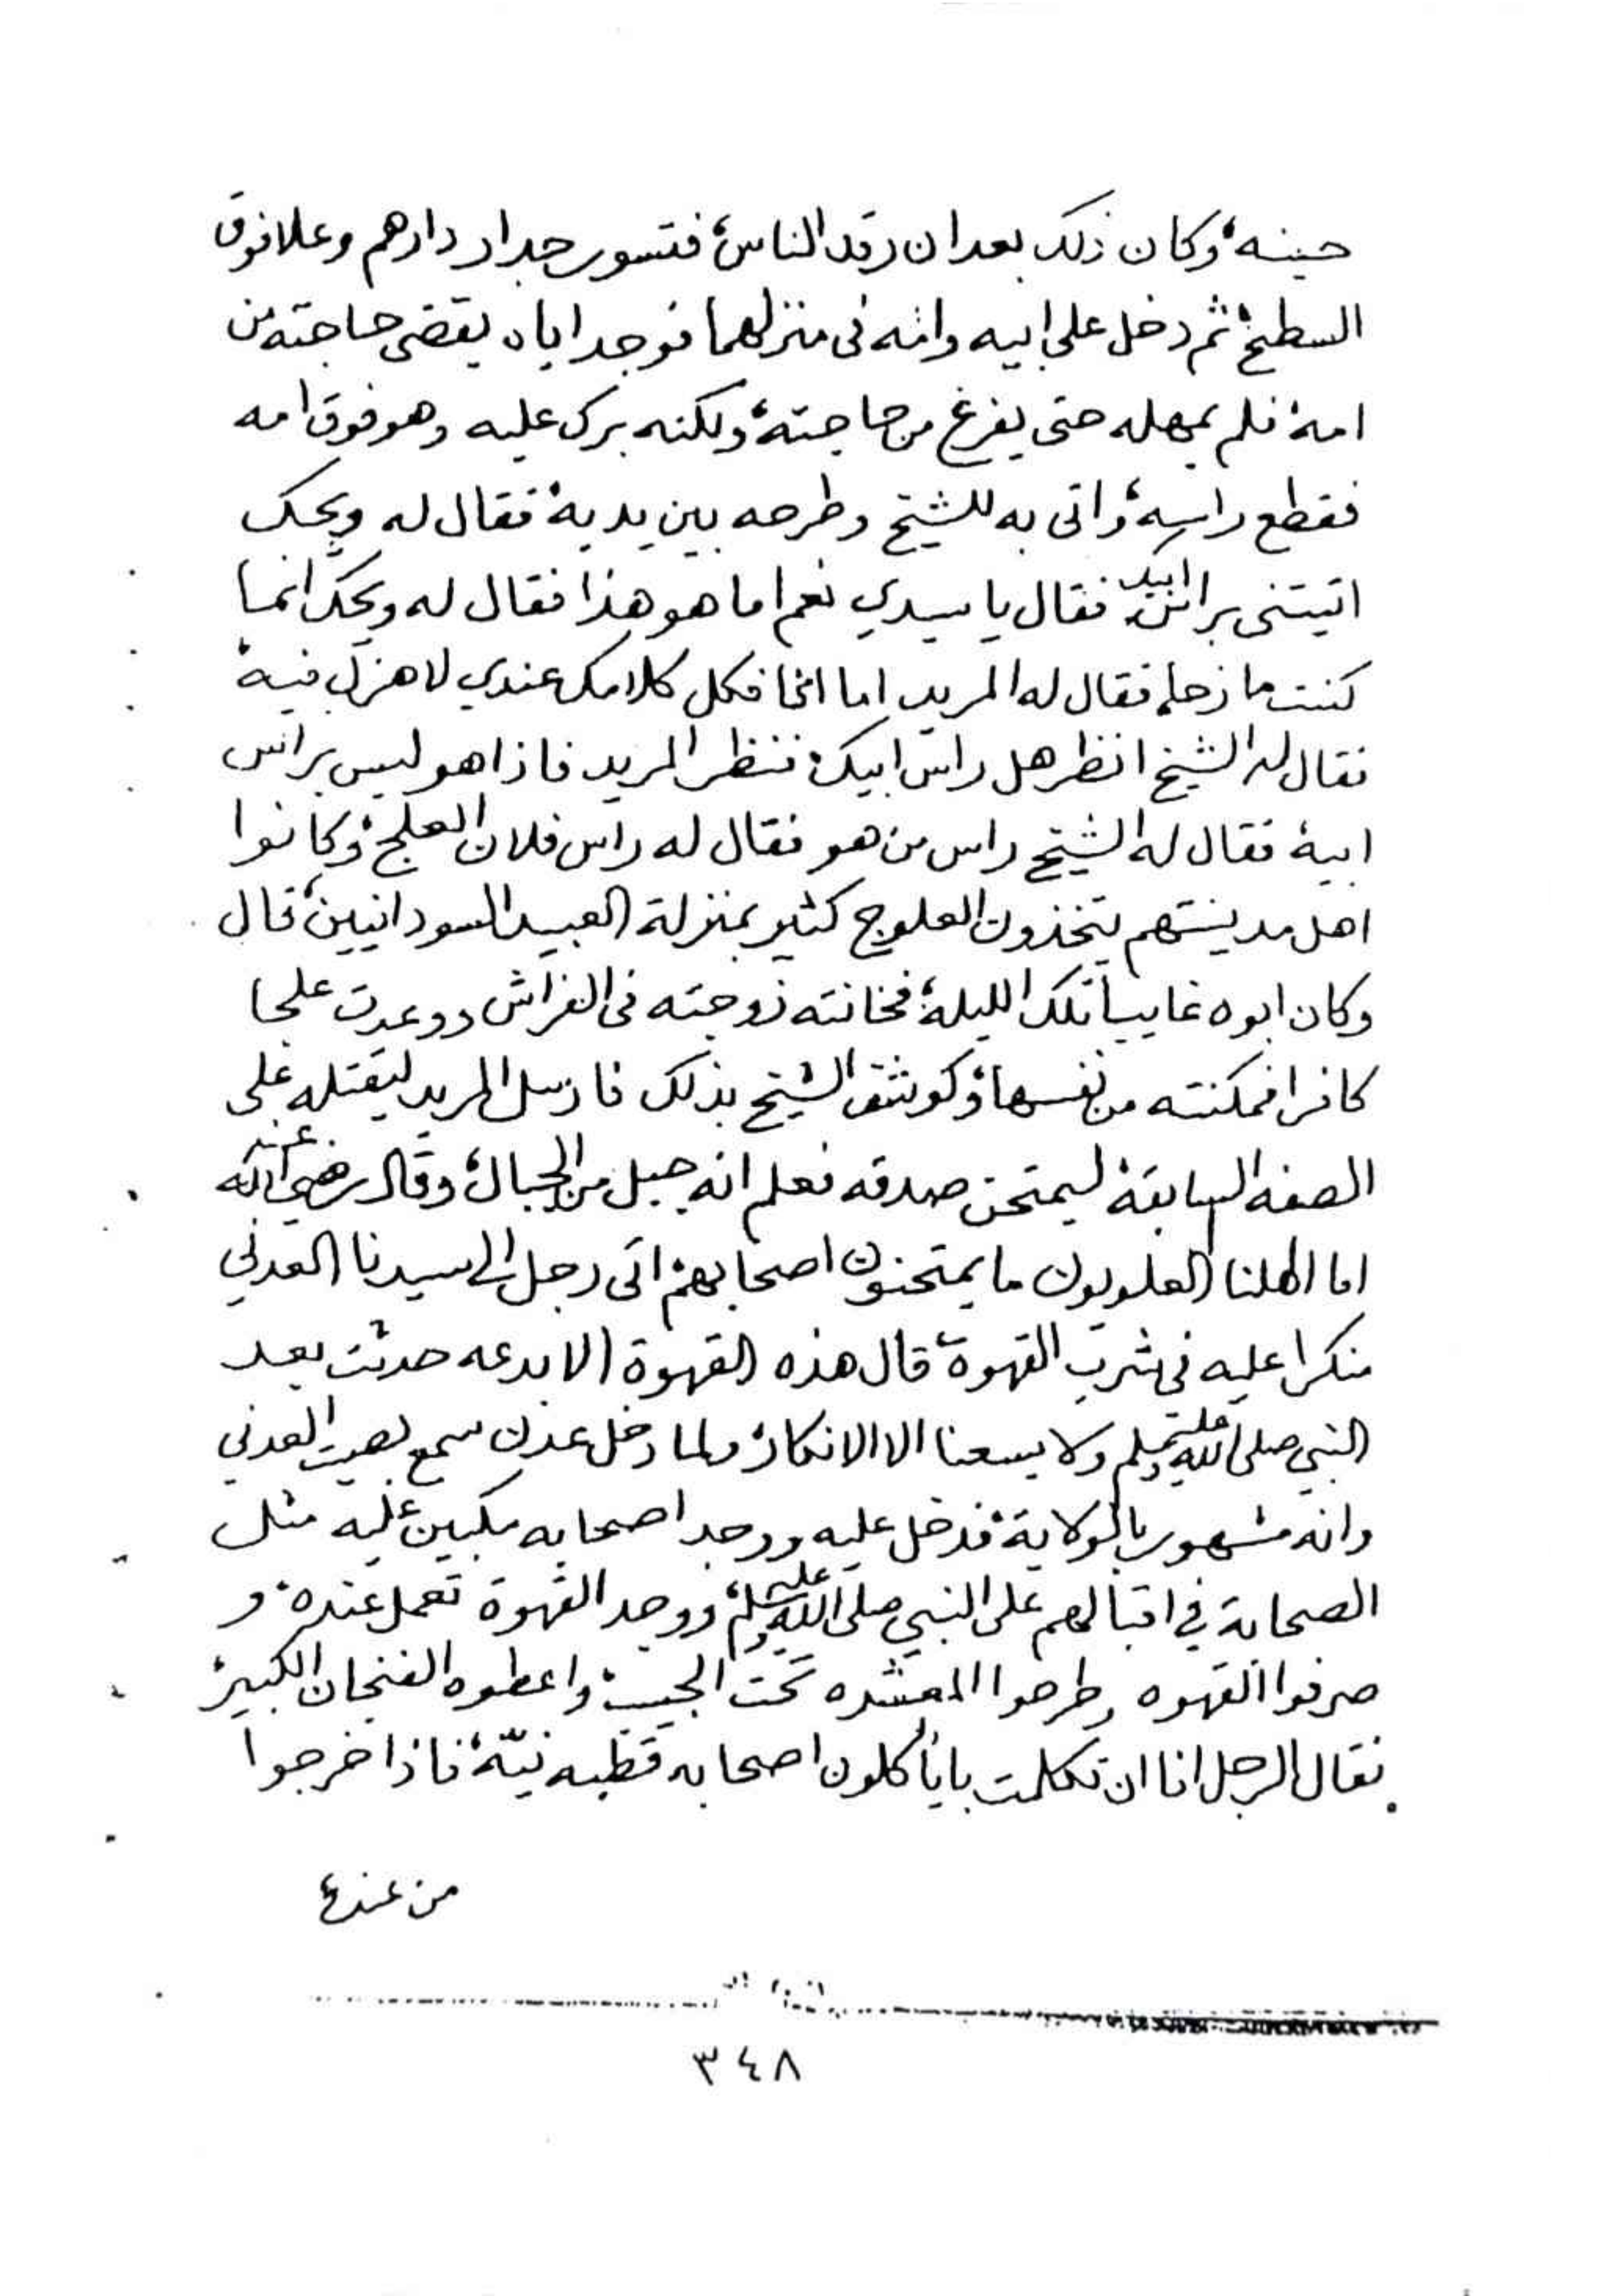 حينه، وكان ذلك بعد ان رقد الناس، فتسور جدار دارهم وعلا فوق
السطح، ثم دخل على ابيه وامه في منزلهما فوجد اباه يقضي حاجته من
امه، فلم يمهله حتى يفرغ من حاجته، ولكنه برك عليه وهو فوق امه
فقطع راسه، واتى به للشيخ وطرحه بين يديه، فقال له ويحك
اتيتني براس ابيك فقال يا سيدي نعم اما هو هذا فقال له ويحك انما
كنت مازحا، فقال له المريد اما انا فكل كلامك عندي لا هزل فيه،
فقال له الشيخ انظر هل راس ابيك، فنظر المريد فاذا هو ليس براس
ابيه، فقال له الشيخ راس من هو فقال له راس فلان العلج، وكانوا
اهل مدينتهم يتخذون العلوج كثير بمنزلة العبيد السودانيين، قال
وكان ابوه غايباً تلك الليلة، فخانته زوجته في الفراش ووعدت علجا
كافرا فمكنته من نفسها، وكوشف الشيخ بذلك فارسل المريد ليقتله على
الصفه السابقة ليمتحن صدقه فعلم انه جبل من الجبال، وقال رضي الله عنه
اما اهلنا العلويون ما يمتحنون اصحابهم، اتى رجل الى سيدنا العدني
منكرا عليه في شرب القهوة، قال هذه القهوة الا بدعه حدثت بعد
النبي صلى الله عليه وسلم ولا يسعنا الا الانكار، ولما دخل عدن سمع بصيت العدني
وانه مشهور بالولاية، فدخل عليه ووجد اصحابه مكبين عليه مثل
الصحابة في اقبالهم على النبي صلى الله عليه وسلم، ووجد القهوة تعمل عنده، و
صرفوا القهوه وطرحوا المقشده تحت الحبيب، واعطوه الفنجان الكبير،
فقال الرجل انا ان تكلمت بايأكلون اصحابه قطبه نيّه، فاذا خرجوا
من عنده
٣٤٨